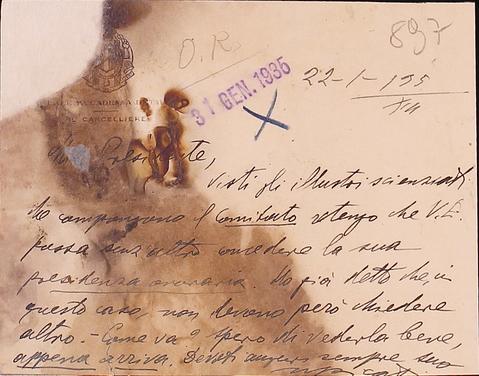 897
O.R.
31 GEN. 1935
22-1-935
XIII
REALE ACCADEMIA D'ITALIA
IL CANCELLIERE
Presidente,
Visti gli illustri scienziati
che compongono il Comitato ritengo che V.E.
possa senz'altro concedere la sua
presidenza onoraria. Ho già detto che, in
questo caso, non devono però chiedere
altro. - Come va? Spero di vederla bene,
appena arriva. Devoti auguri sempre suo